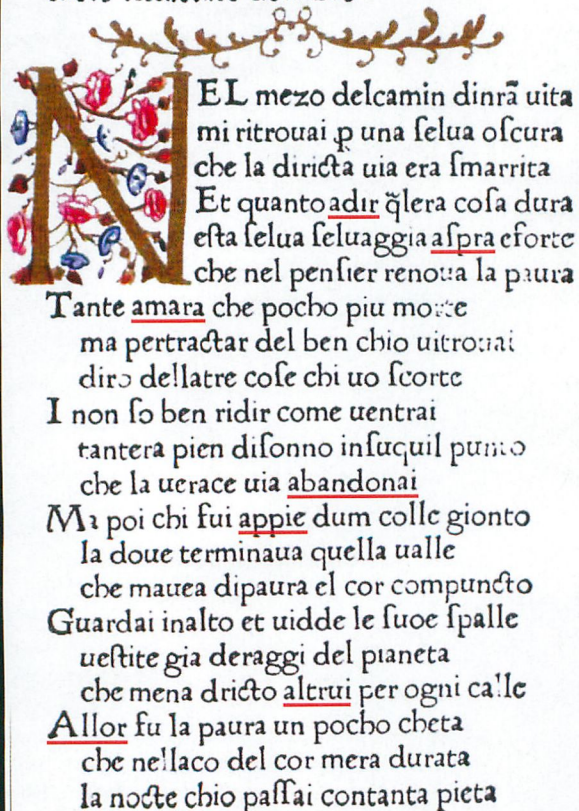 NEL mezo delcamin dinrã uita
mi ritrouai ꝑ una ſelua oſcura
che la diricta uia era ſmarrita
Et quanto adir q̃lera coſa dura
eſta ſelua ſeluaggia aſpra eforte
che nel penſier renoua la paura
Tante amara che pocho piu morte
ma pertractar del ben chio uitrouai
diro dellatre coſe chi uo ſcorte
I non ſo ben ridir come uentrai
tantera pien diſonno inſuquil punto
che la uerace uia abandonai
Ma poi chi fui appie dum colle gionto
la doue terminaua quella ualle
che mauea dipaura el cor compuncto
Guardai inalto et uidde le ſuoe ſpalle
ueſtite gia deraggi del pianeta
che mena dricto altrui per ogni calle
Allor fu la paura un pocho cheta
che nellaco del cor mera durata
la nocte chio paſſai contanta pieta